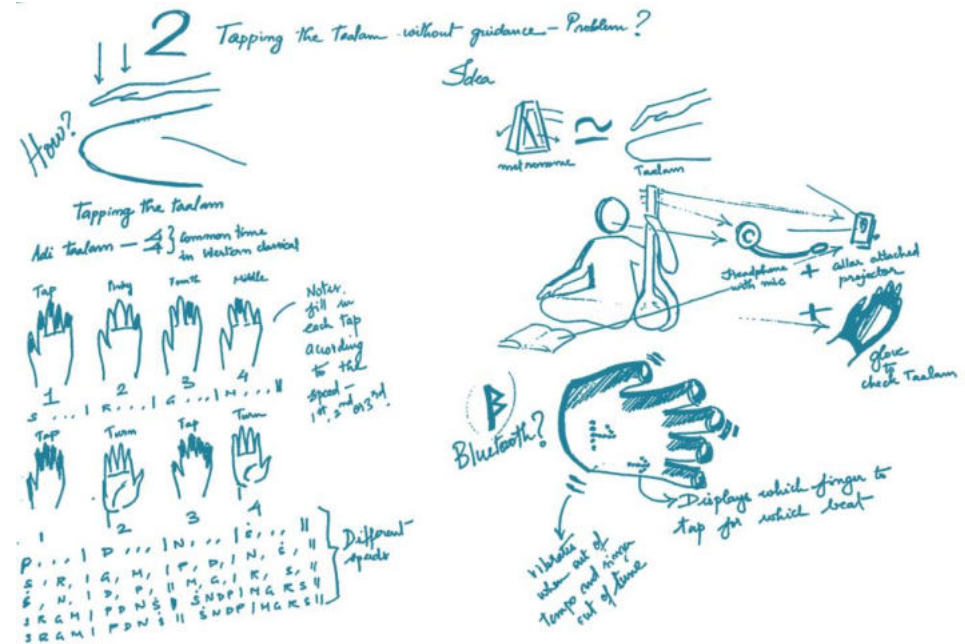 2 Tapping the Taalam without guidance - Problem?
Idea
How?
Tapping the taalam
Adi taalam - 4/4 } Common time
in Western classical
Tap Pinky Fourth Middle
1 2 3 4
S , , , | R , , , | G , , , | M , , , ||
Notes
fill in
each tap
according
to the
speed -
1st, 2nd or 3rd.
Tap Turn Tap Turn
1 2 3 4
P , , , | D , , , | N , , , | Ṡ , , , ||
S , R , | G , M , | P , D , | N , Ṡ , ||
Ṡ , N , | D , P , || M , G , | R , S , ||
S R G M | P D N Ṡ || Ṡ N D P | M G R S ||
S R G M | P D N Ṡ || Ṡ N D P | M G R S ||
} Different
speeds
metronome
≃
Taalam
Headphone
with mic
+
collar attached
projector
+
glove
to
check Taalam
Bluetooth?
Displays which finger to
tap for which beat
Vibrates
when out of
tempo and singer
out of tune